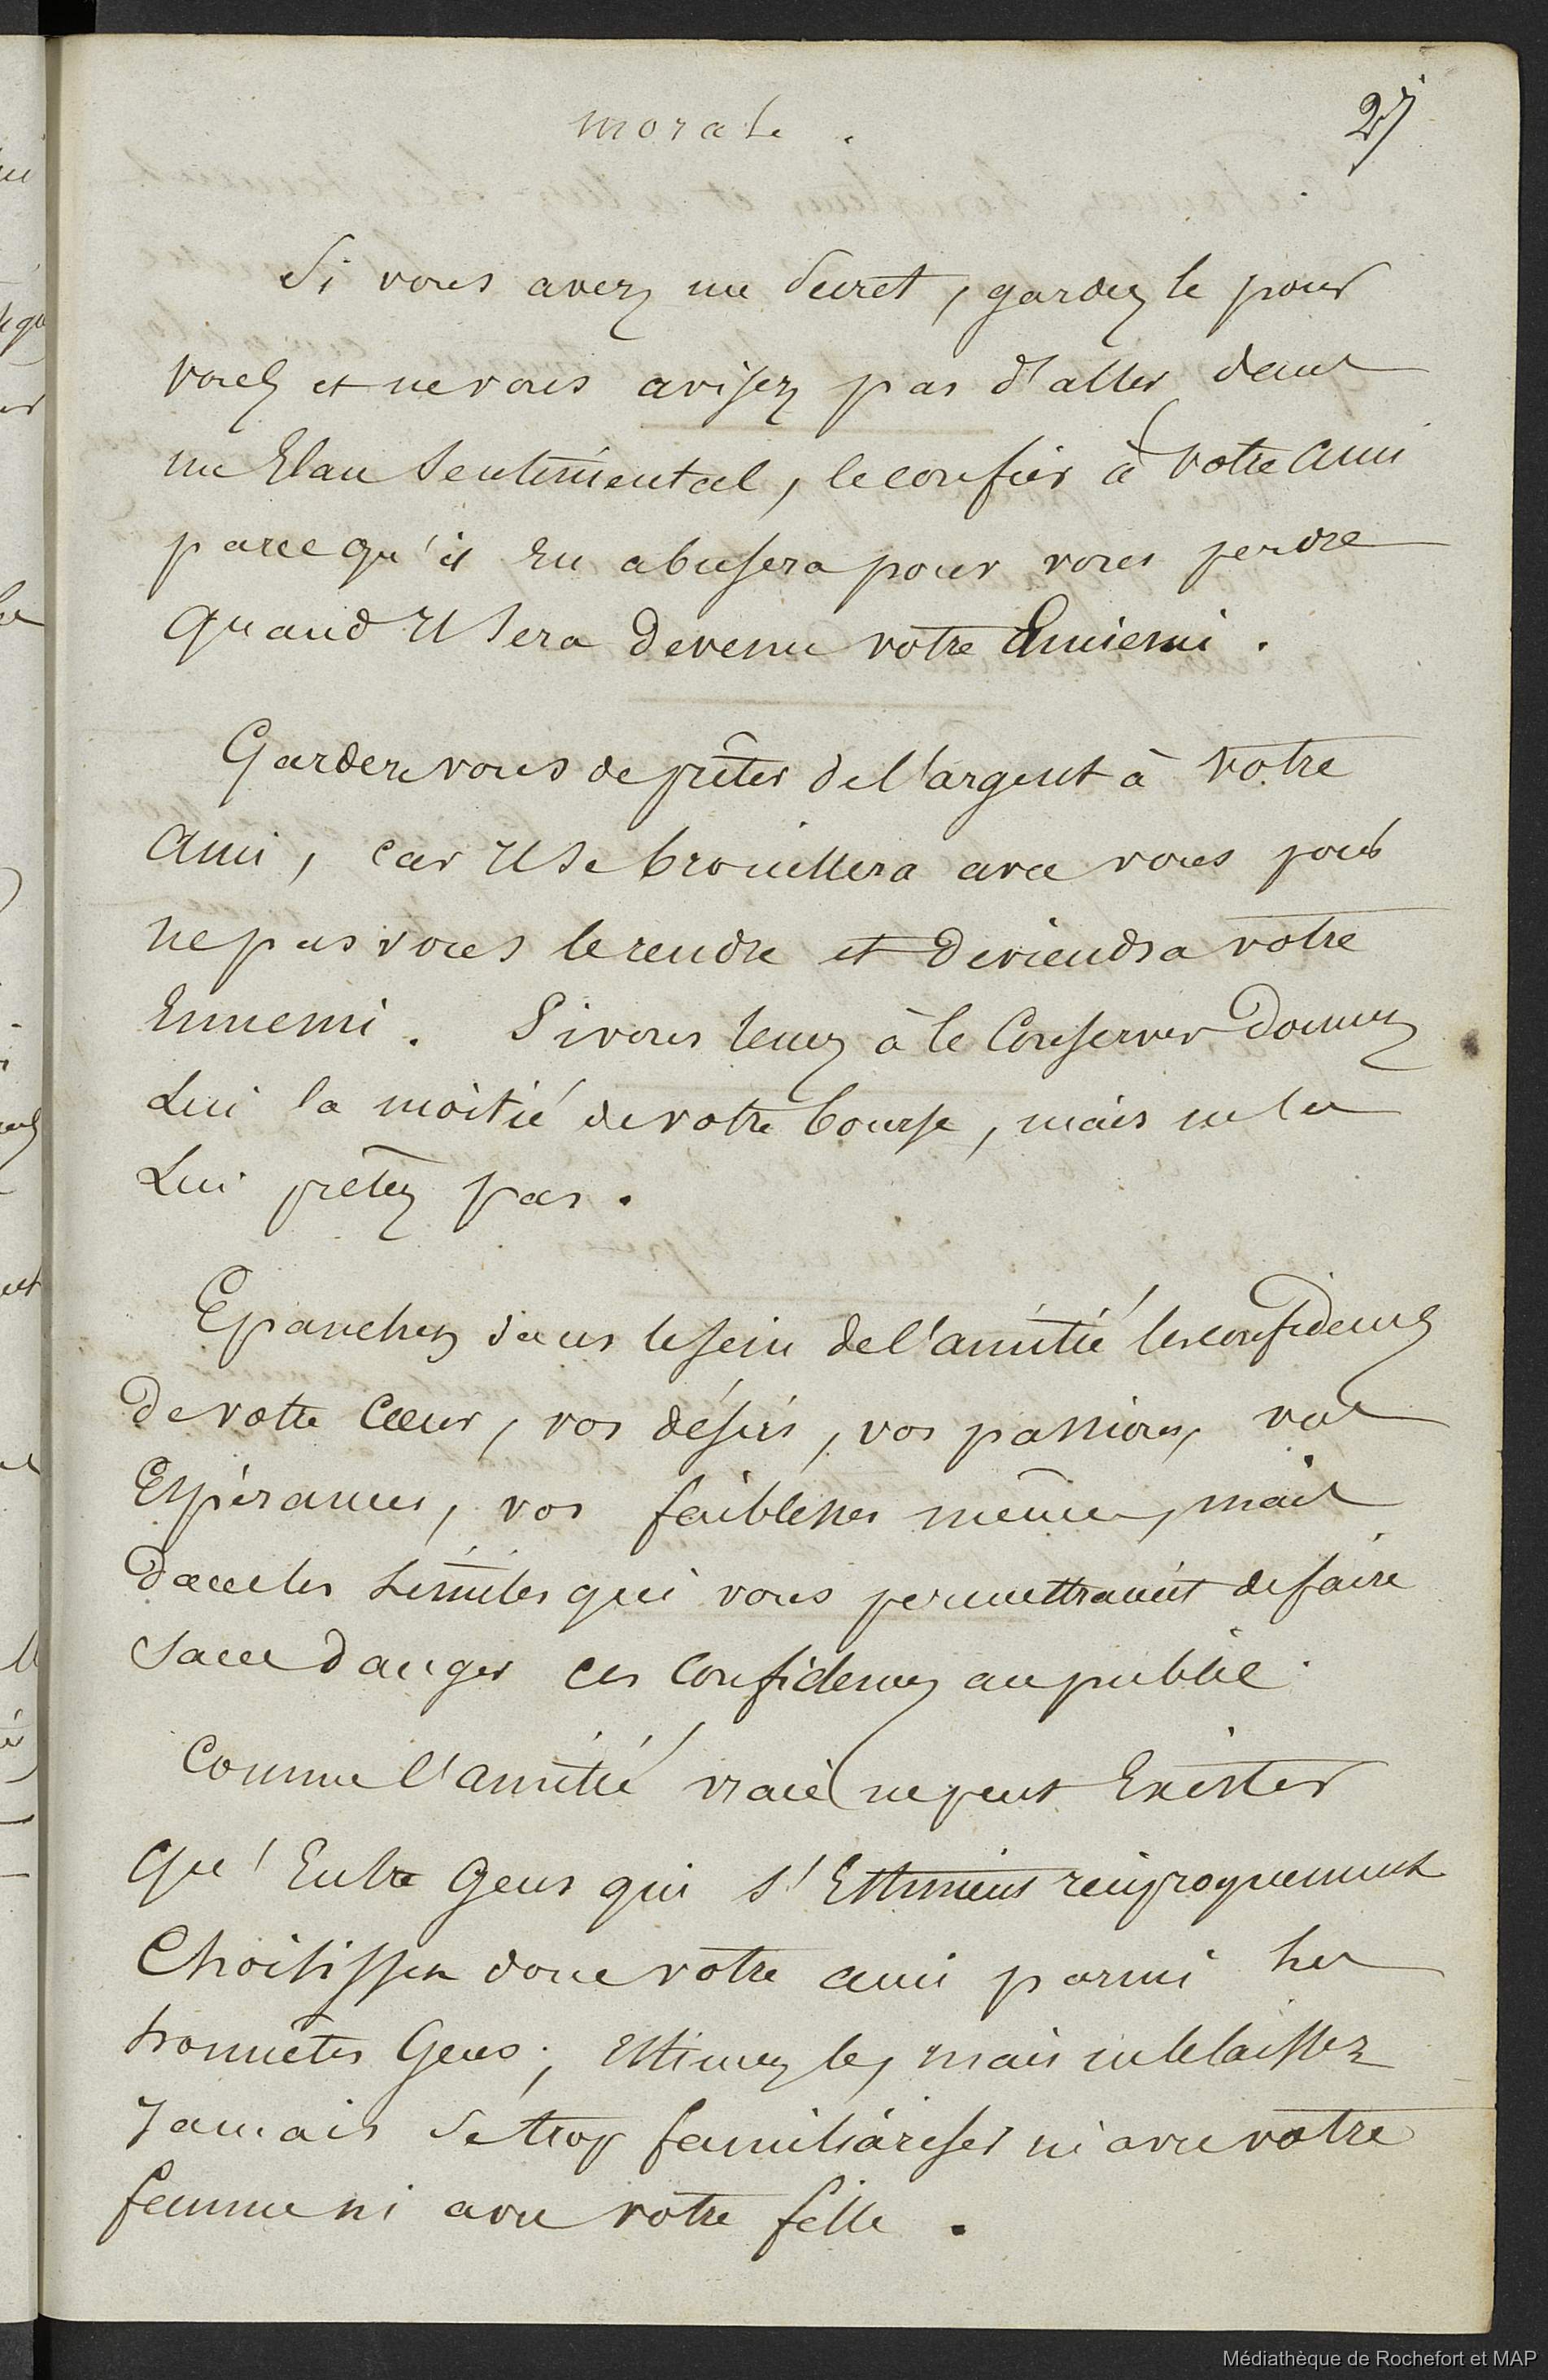 morale.
27
Si vous avez un secret, gardez le pour
vous et ne vous avisez pas d'aller dans
un Elan sentimental, le confier à votre ami
parcequ'il en abusera pour vous perdre
quand Il sera devenu votre Ennemi.
Gardez vous de prêter de l'argent à votre
ami, car Il se brouillera avec vous pour
ne pas vous le rendre et deviendra votre
Ennemi. Si vous tenez à le Conserver Donnez
Lui la moitié de votre bourse, mais ne la
Lui prêtez pas.
Epanchez dans le sein de l'amitié les confidences
de votre Cœur, vos désirs, vos passions, vos
Espérances, vos faiblesses même, mais
dans les Limites qui vous permettraient de faire
sans danger ces Confidences au public.
Comme l'amitié vraie ne peut Exister
qu'Entre Gens qui s'Estiment réciproquement
Choisissez donc votre ami parmi les
honnêtes Gens; estimez le, mais ne le laissez
Jamais se trop familiariser ni avec votre
femme ni avec votre fille.
Médiathèque de Rochefort et MAP